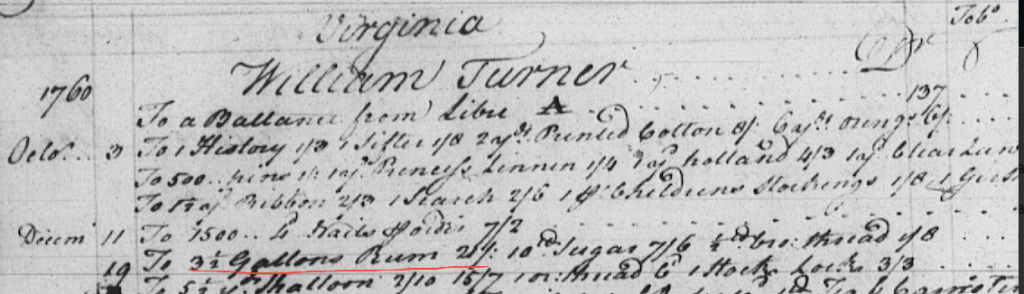 Virginia
Tobo.
William Turner Dr
1760
To a Ballance from Libre A 137
Octor. 3 To 1 History 1/3 1 Sifter 1/8 2 yds Printed Cotton 8/ 6 yds 6/
To 500 pins 1/ 1 yd Princess Linnen 1/4 yd holland 4/3 1 yd Clear
To 1 1/2 yd Ribbon 2/3 1 Search 2/6 1 pr Childrens Stockengs 1/8 1
Decem 11 To 1500 4d Nails 7/2
To 3 1/2 Gallons Rum 21/ 10 lb Sugar 7/6 1/2 lb bro: thread 1/8
19 To 5 1/2 yd Shalloon 2/10 15/7 1 oz: thread 6d 1 Stock Lock 3/3